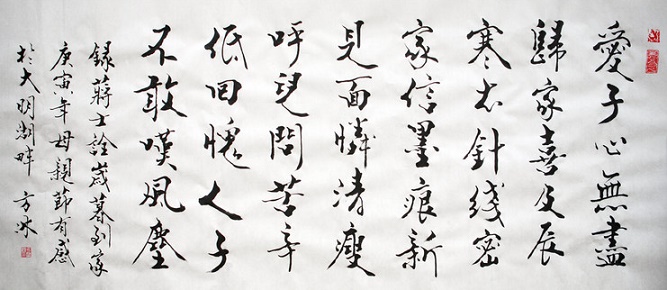 愛子心無盡
歸家喜及辰
寒衣針綫密
家信墨痕新
見面憐清瘦
呼兒問苦辛
低回愧人子
不敢嘆風塵
錄蔣士銓歲暮到家
庚寅年母親節有感
於大明湖畔 方冰